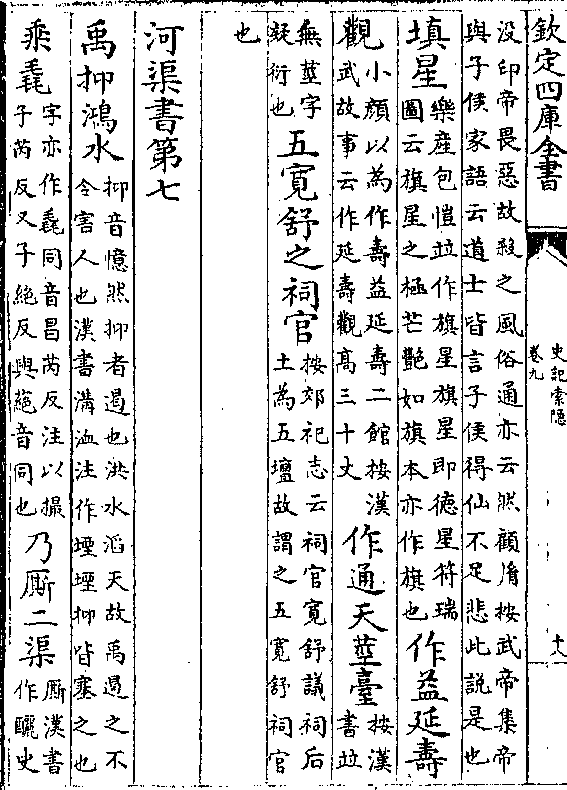 欽定四庫全書
史記索隱
卷九
十八
没印帝畏惡故殺之風俗通亦云然顧㣧按武帝集帝
與子侯家語云道士皆言子侯得仙不足悲此説是也
填星樂産包愷竝作旗星旗星即德星符瑞
圖云旗星之極芒艷如旗本亦作旗也作益延壽
觀小顔以為作壽益延壽二館按漢
武故事云作延壽觀髙三十丈作通天莖臺按漢
書竝
無莖字
疑衍也五寛舒之祠官按郊祀志云祠官寛舒議祠后
土為五壇故謂之五寛舒祠官
也
河渠書第七
禹抑鴻水抑音憶然抑者遏也洪水滔天故禹遏之不
令害人也漢書溝洫注作堙堙抑皆塞之也
乘毳字亦作毳同音昌芮反注以撮
子芮反又子絶反與蕝音同也乃厮二渠厮漢書
作釃史